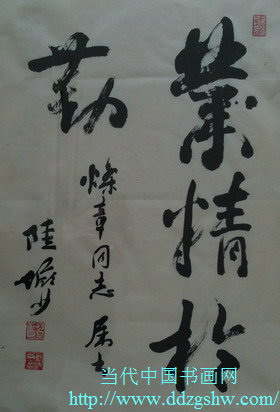 業精於
勤
燦章同志属书
陆俨少
当代中国书画网
www.ddzgshw.com